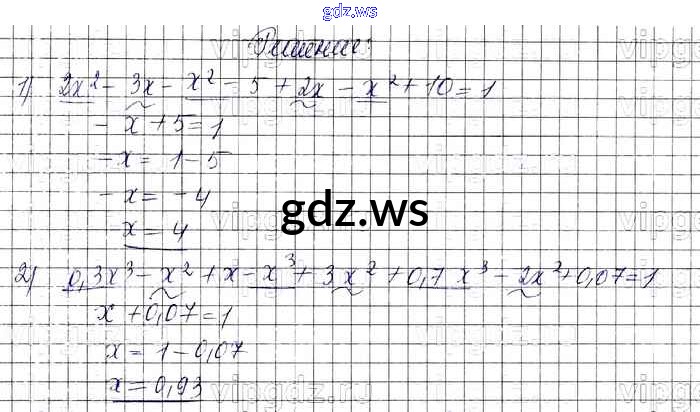 gdz.ws
Решение:
1) 2x² - 3x - x² - 5 + 2x - x² + 10 = 1
- x + 5 = 1
- x = 1 - 5
- x = - 4
x = 4
gdz.ws
2) 0,3x³ - x² + x - x³ + 3x² + 0,7x³ - 2x² + 0,07 = 1
x + 0,07 = 1
x = 1 - 0,07
x = 0,93
vipgdz.ru